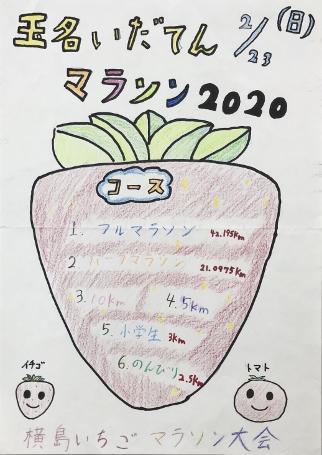 玉名いだてん 2/23(日)
マラソン2020
コース
1. フルマラソン 42.195km
2 ハーフマラソン 21.0975km
3. 10km 4.5km
5. 小学生 3km
6. のんびり 2.5km
イチゴ トマト
横島いちごマラソン大会